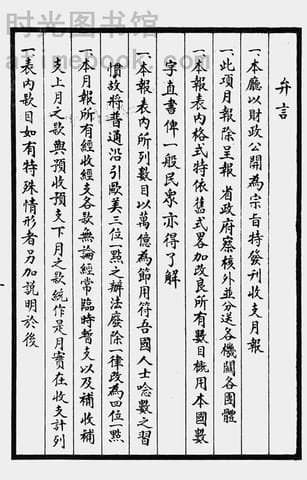 时光图书馆
弁言
一、本廳以財政公開為宗旨特發刊收支月報
一、此項月報除呈報 省政府察核外並分送各機關各團體
一、本報表內格式特依舊式畧加改良所有數目概用本國數
字直書俾一般民衆亦得了解
一、本報表內所列數目以萬億為節用符吾國人士唸數之習
慣故將普通沿引歐美三位一點之辦法廢除一律改為四位一點
一、本月報所有經收經支各款無論經常臨時暫支以及補收補
支上月之款與預收預支下月之款統作是月實在收支計列
一、表內款目如有特殊情形者另加說明於後